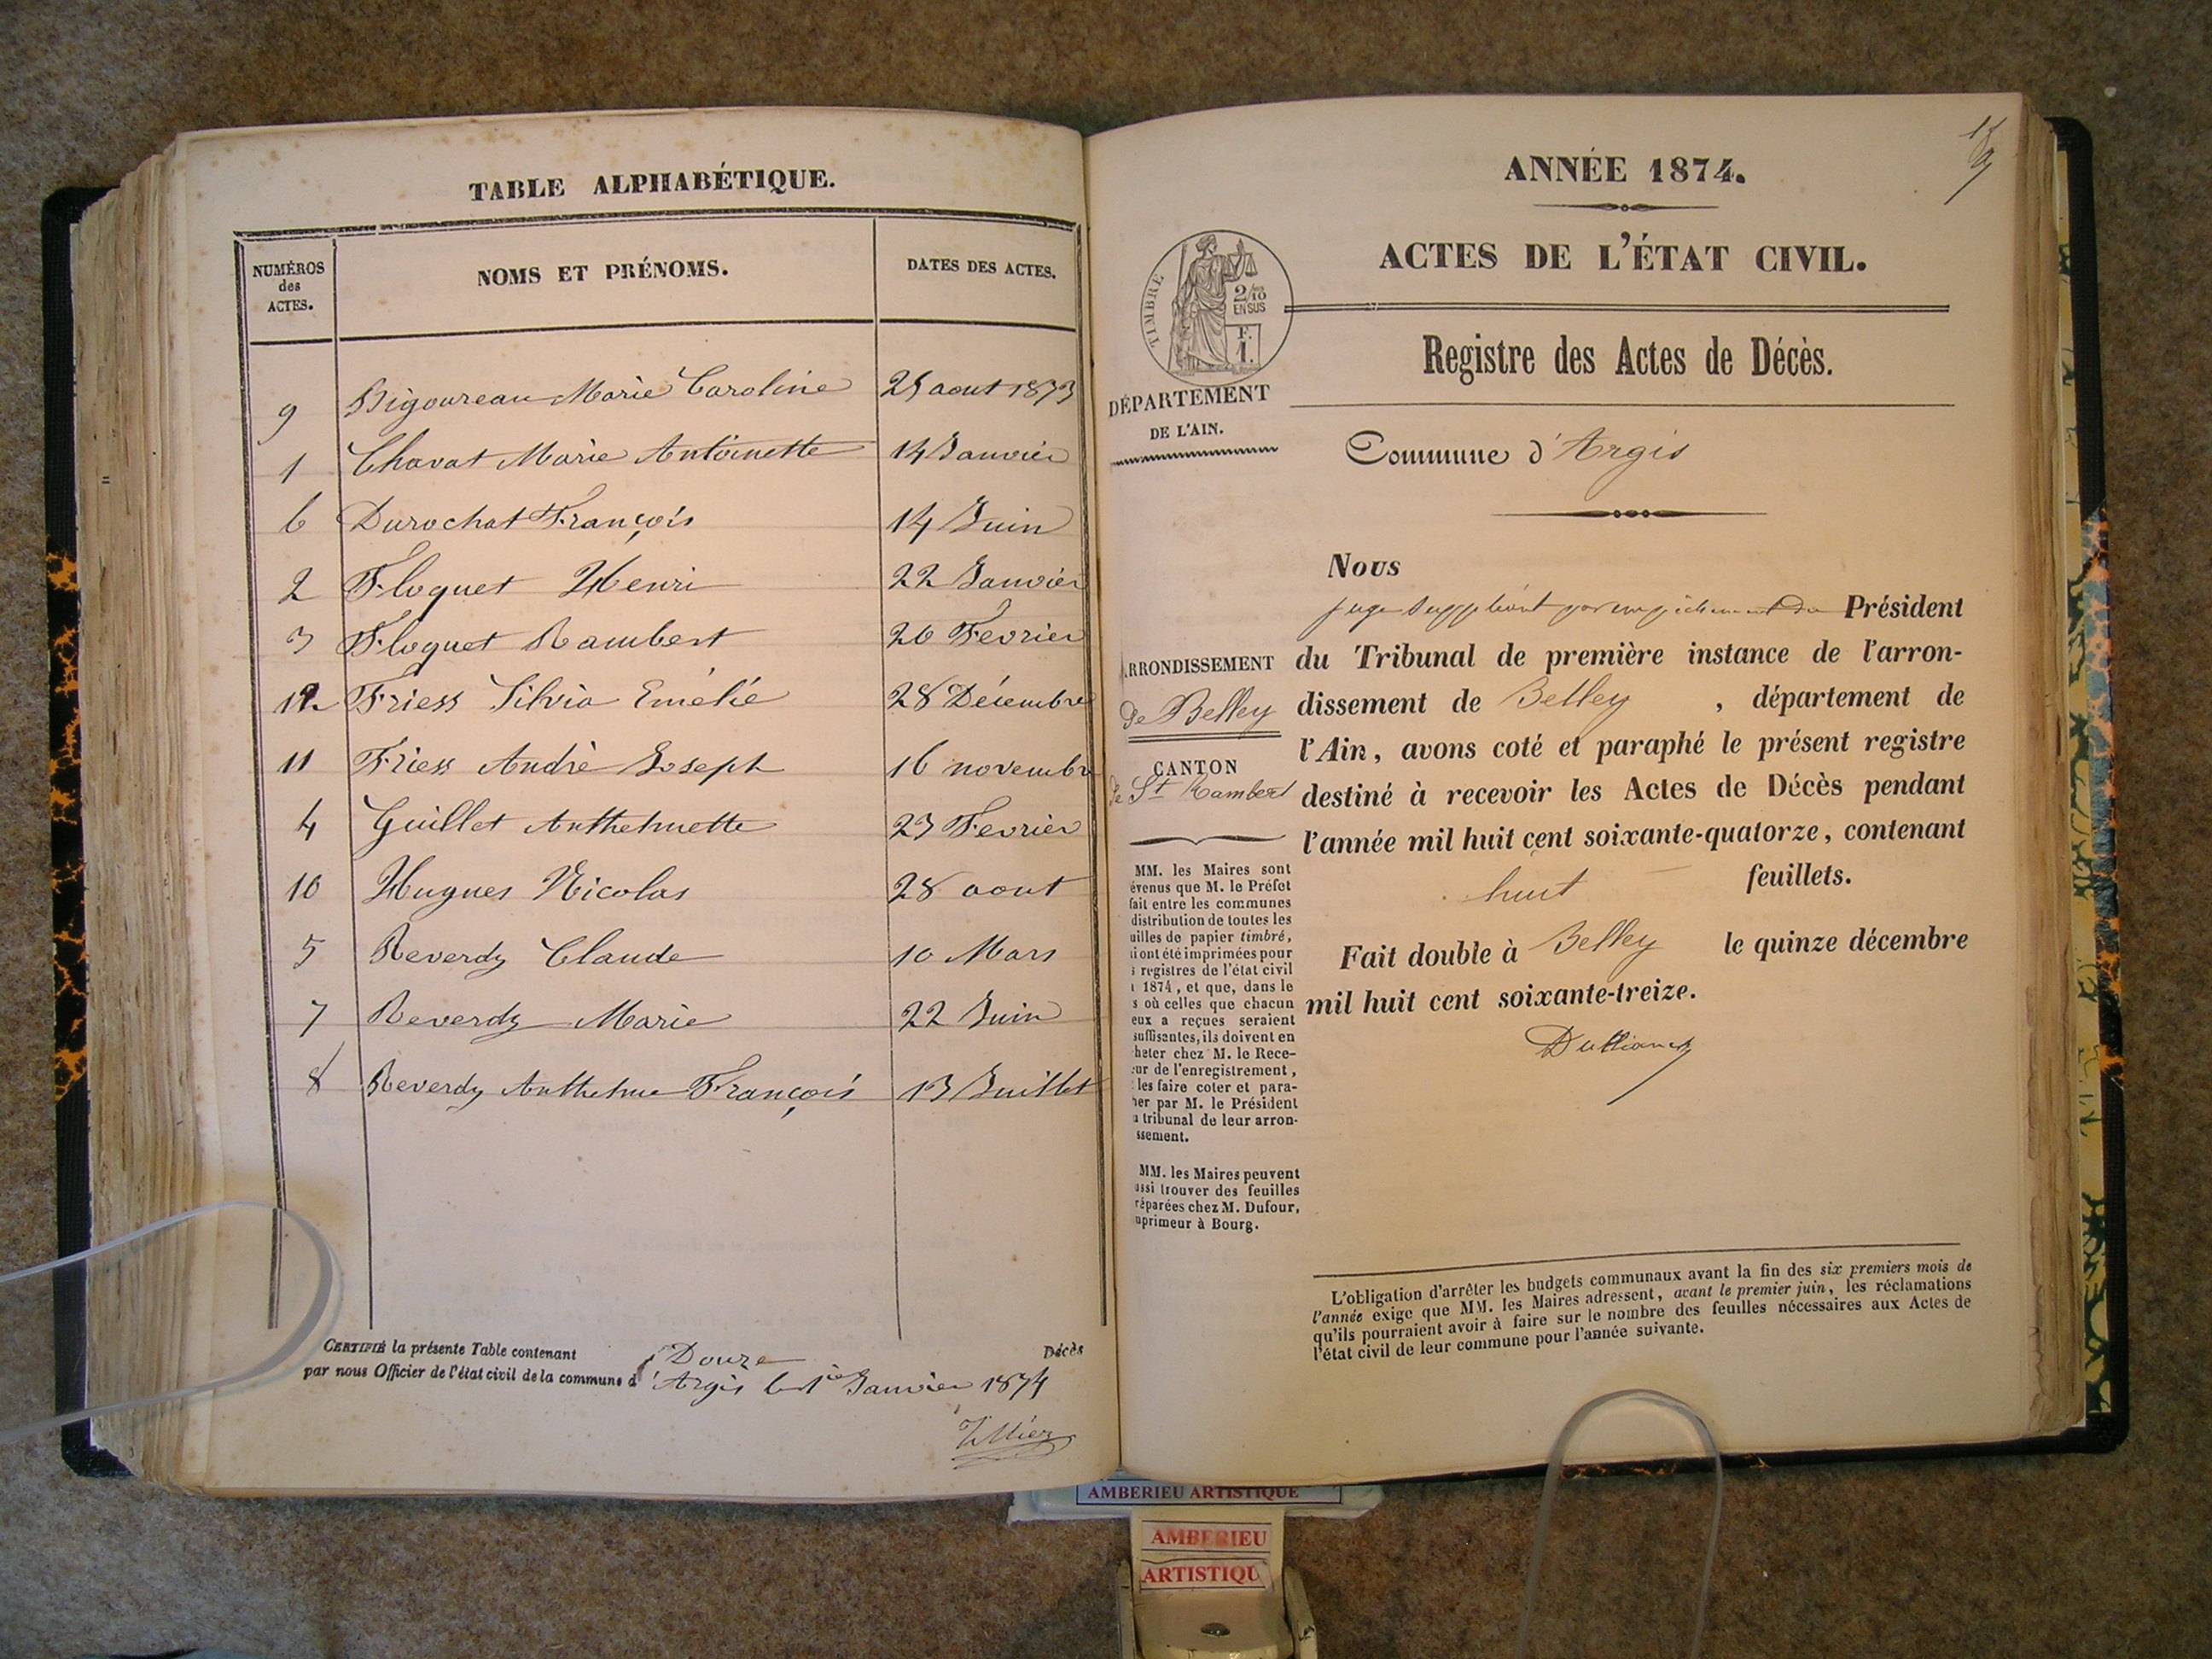 TABLE ALPHABÉTIQUE.
NUMÉROS des ACTES. NOMS ET PRÉNOMS. DATES DES ACTES.
9 Bigoureau Marie Caroline 25 aout 1873
1 Chavat Marie Antoinette 14 Janvier
6 Durochat François 14 Juin
2 Floquet Henri 22 Janvier
3 Floquet Rambert 20 Fevrier
12 Friess Silvia Emélie 28 Décembre
11 Friess Andrè Joseph 16 novembre
4 Guillet Anthelmette 23 Fevrier
10 Hugues Nicolas 28 aout
5 Reverdy Claude 10 Mars
7 Reverdy Marie 22 Juin
8 Reverdy Anthelme François 13 Juillet
CERTIFIÉ la présente Table contenant Douze Décès
par nous Officier de l'état civil de la commune d'Argis le 1er Janvier 1874
ANNÉE 1874.
ACTES DE L'ÉTAT CIVIL.
TIMBRE
2/10 EN SUS
F. 1.
Registre des Actes de Décès.
DÉPARTEMENT
DE L'AIN.
Commune d'Argis
Nous
juge suppléant par empêchement du Président
du Tribunal de première instance de l'arron-
dissement de Belley, département de
l'Ain, avons coté et paraphé le présent registre
destiné à recevoir les Actes de Décès pendant
l'année mil huit cent soixante-quatorze, contenant
huit feuillets.
Fait double à Belley le quinze décembre
mil huit cent soixante-treize.
RRONDISSEMENT
de Belley
CANTON
de St Rambert
MM. les Maires sont
évenus que M. le Préfet
fait entre les communes
distribution de toutes les
uilles de papier timbré,
i ont été imprimées pour
s registres de l'état civil
1874, et que, dans le
s où celles que chacun
eux a reçues seraient
suffisantes, ils doivent en
heter chez M. le Rece-
ur de l'enregistrement,
les faire coter et para-
her par M. le Président
u tribunal de leur arron-
ssement.
MM. les Maires peuvent
ussi trouver des feuilles
réparées chez M. Dufour,
mprimeur à Bourg.
L'obligation d'arrêter les budgets communaux avant la fin des six premiers mois de
l'année exige que MM. les Maires adressent, avant le premier juin, les réclamations
qu'ils pourraient avoir à faire sur le nombre des feuilles nécessaires aux Actes de
l'état civil de leur commune pour l'année suivante.
AMBERIEU ARTISTIQUE
AMBERIEU
ARTISTIQU